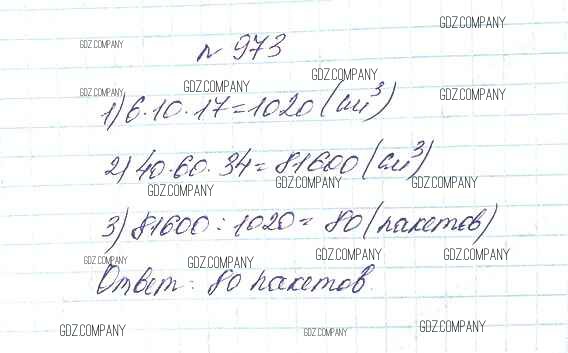 GDZ.COMPANY
GDZ.COMPANY
№ 973
GDZ.COMPANY
GDZ.COMPANY
GDZ.COMPANY
GDZ.COMPANY
1) 6·10·17=1020 (см³)
2) 40·60·34=81600 (см³)
GDZ.COMPANY
GDZ.COMPANY
GDZ.COMPANY
3) 81600:1020=80 (пакетов)
GDZ.COMPANY
GDZ.COMPANY
GDZ.COMPANY
GDZ.COMPANY
Ответ: 80 пакетов.
GDZ.COMPANY
GDZ.COMPANY
GDZ.COMPANY